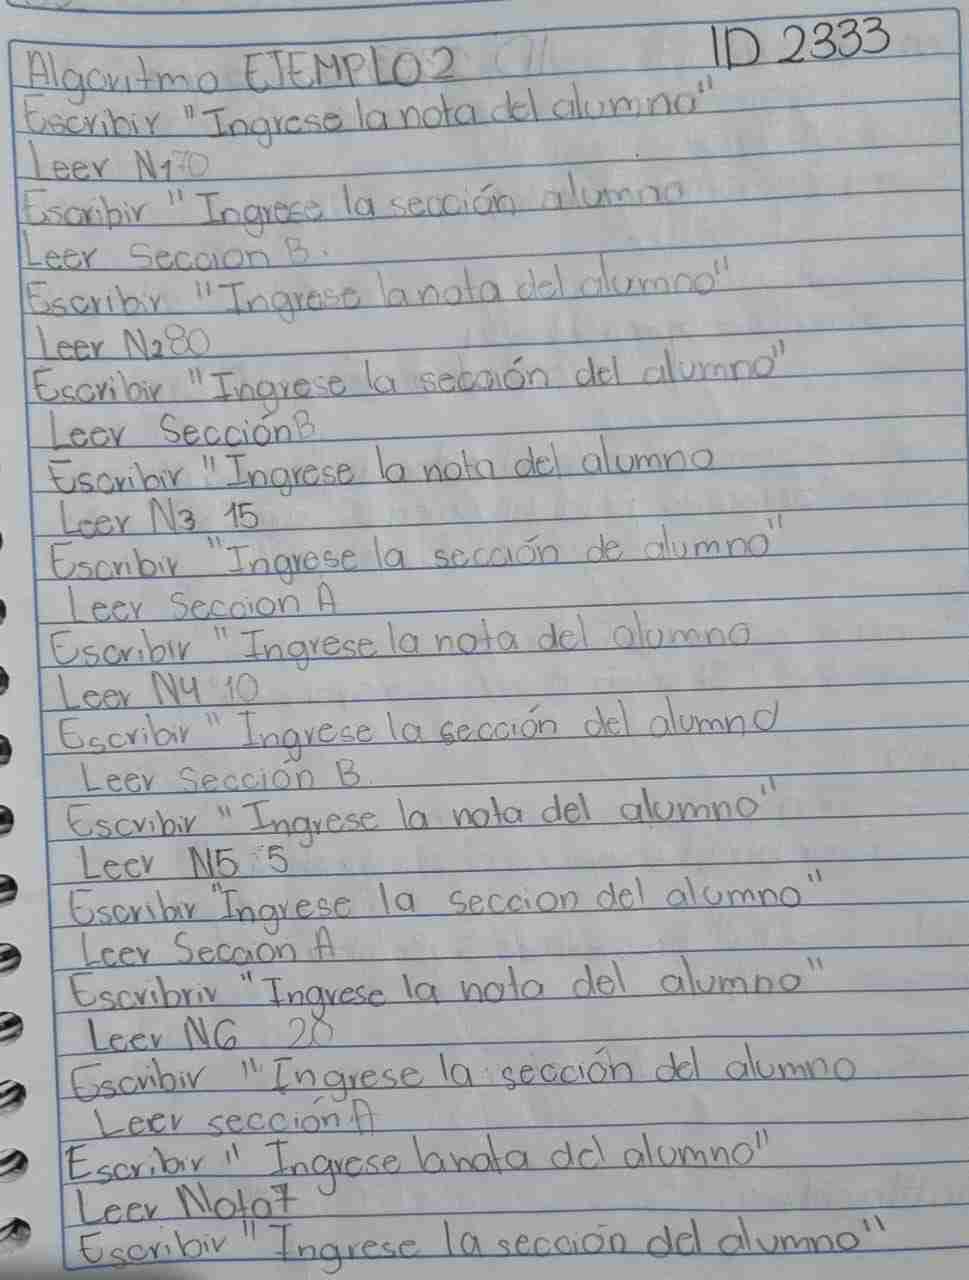 ID 2333
Algoritmo EJEMPLO2
Escribir "Ingrese la nota del alumno"
Leer N1 70
Escribir "Ingrese la sección alumno
Leer Seccion B.
Escribir "Ingrese la nota del alumno"
Leer N2 80
Escribir "Ingrese la sección del alumno"
Leer Sección B
Escribir "Ingrese la nota del alumno
Leer N3 15
Escribir "Ingrese la sección de alumno"
Leer Seccion A
Escribir "Ingrese la nota del alumno
Leer N4 10
Escribir "Ingrese la sección del alumno
Leer Sección B
Escribir "Ingrese la nota del alumno"
Leer N5 5
Escribir "Ingrese la seccion del alumno"
Leer Seccion A
Escribrir "Ingrese la nota del alumno"
Leer N6 28
Escribir "Ingrese la sección del alumno
Leer sección A
Escribir "Ingrese la nota del alumno"
Leer Nota7
Escribir "Ingrese la sección del alumno"